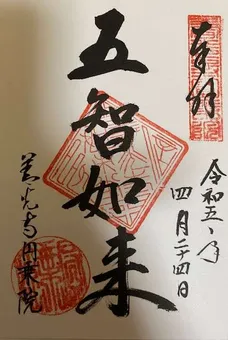 奉拝
令和五年
四月二十四日
五智如来
善光寺円乗院